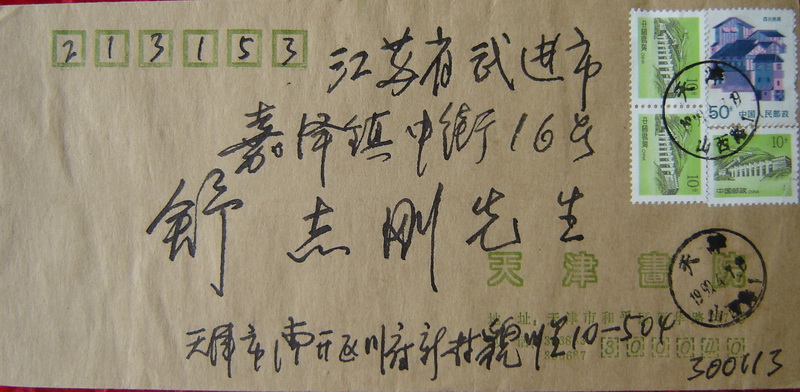 213153
江苏省武进市
嘉泽镇中街16号
舒志刚先生
天津書院
地址:天津市和平
天津市南开区川府新村
10-504
300113
300040
50分 中国人民邮政
10分 中国邮政
中国邮政
10分
中国邮政
10分
天津
山西路
天津